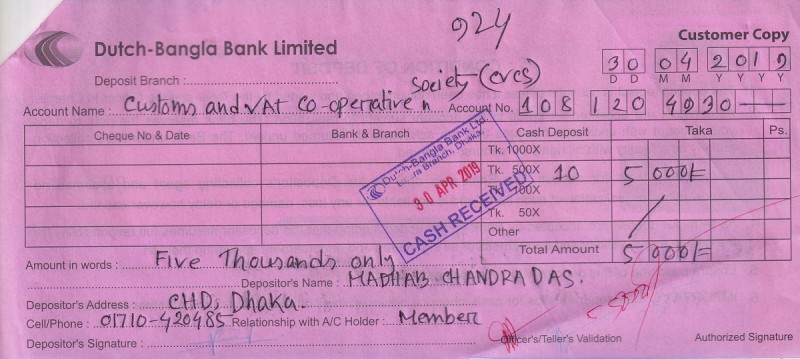 924
Customer Copy
Dutch-Bangla Bank Limited
30 04 2019
D D M M Y Y Y Y
Deposit Branch :
Society (CVCS)
Account Name : Customs and VAt Co-operative n Account No. 108 120 4930——
Cheque No & Date Bank & Branch Cash Deposit Taka Ps.
Tk. 1000X
Tk. 500X 10 5000/=
Tk. 100X
Tk. 50X
Other
Total Amount 5000/=
Dutch-Bangla Bank Ltd.
Branch, Dhaka.
30 APR 2019
CASH RECEIVED
Amount in words : Five Thousands only
Depositor's Name : MADHAB CHANDRA DAS.
Depositor's Address : CHD, Dhaka.
Cell/Phone : 01710-420485 Relationship with A/C Holder : Member
Depositor's Signature : Officer's/Teller's Validation Authorized Signature